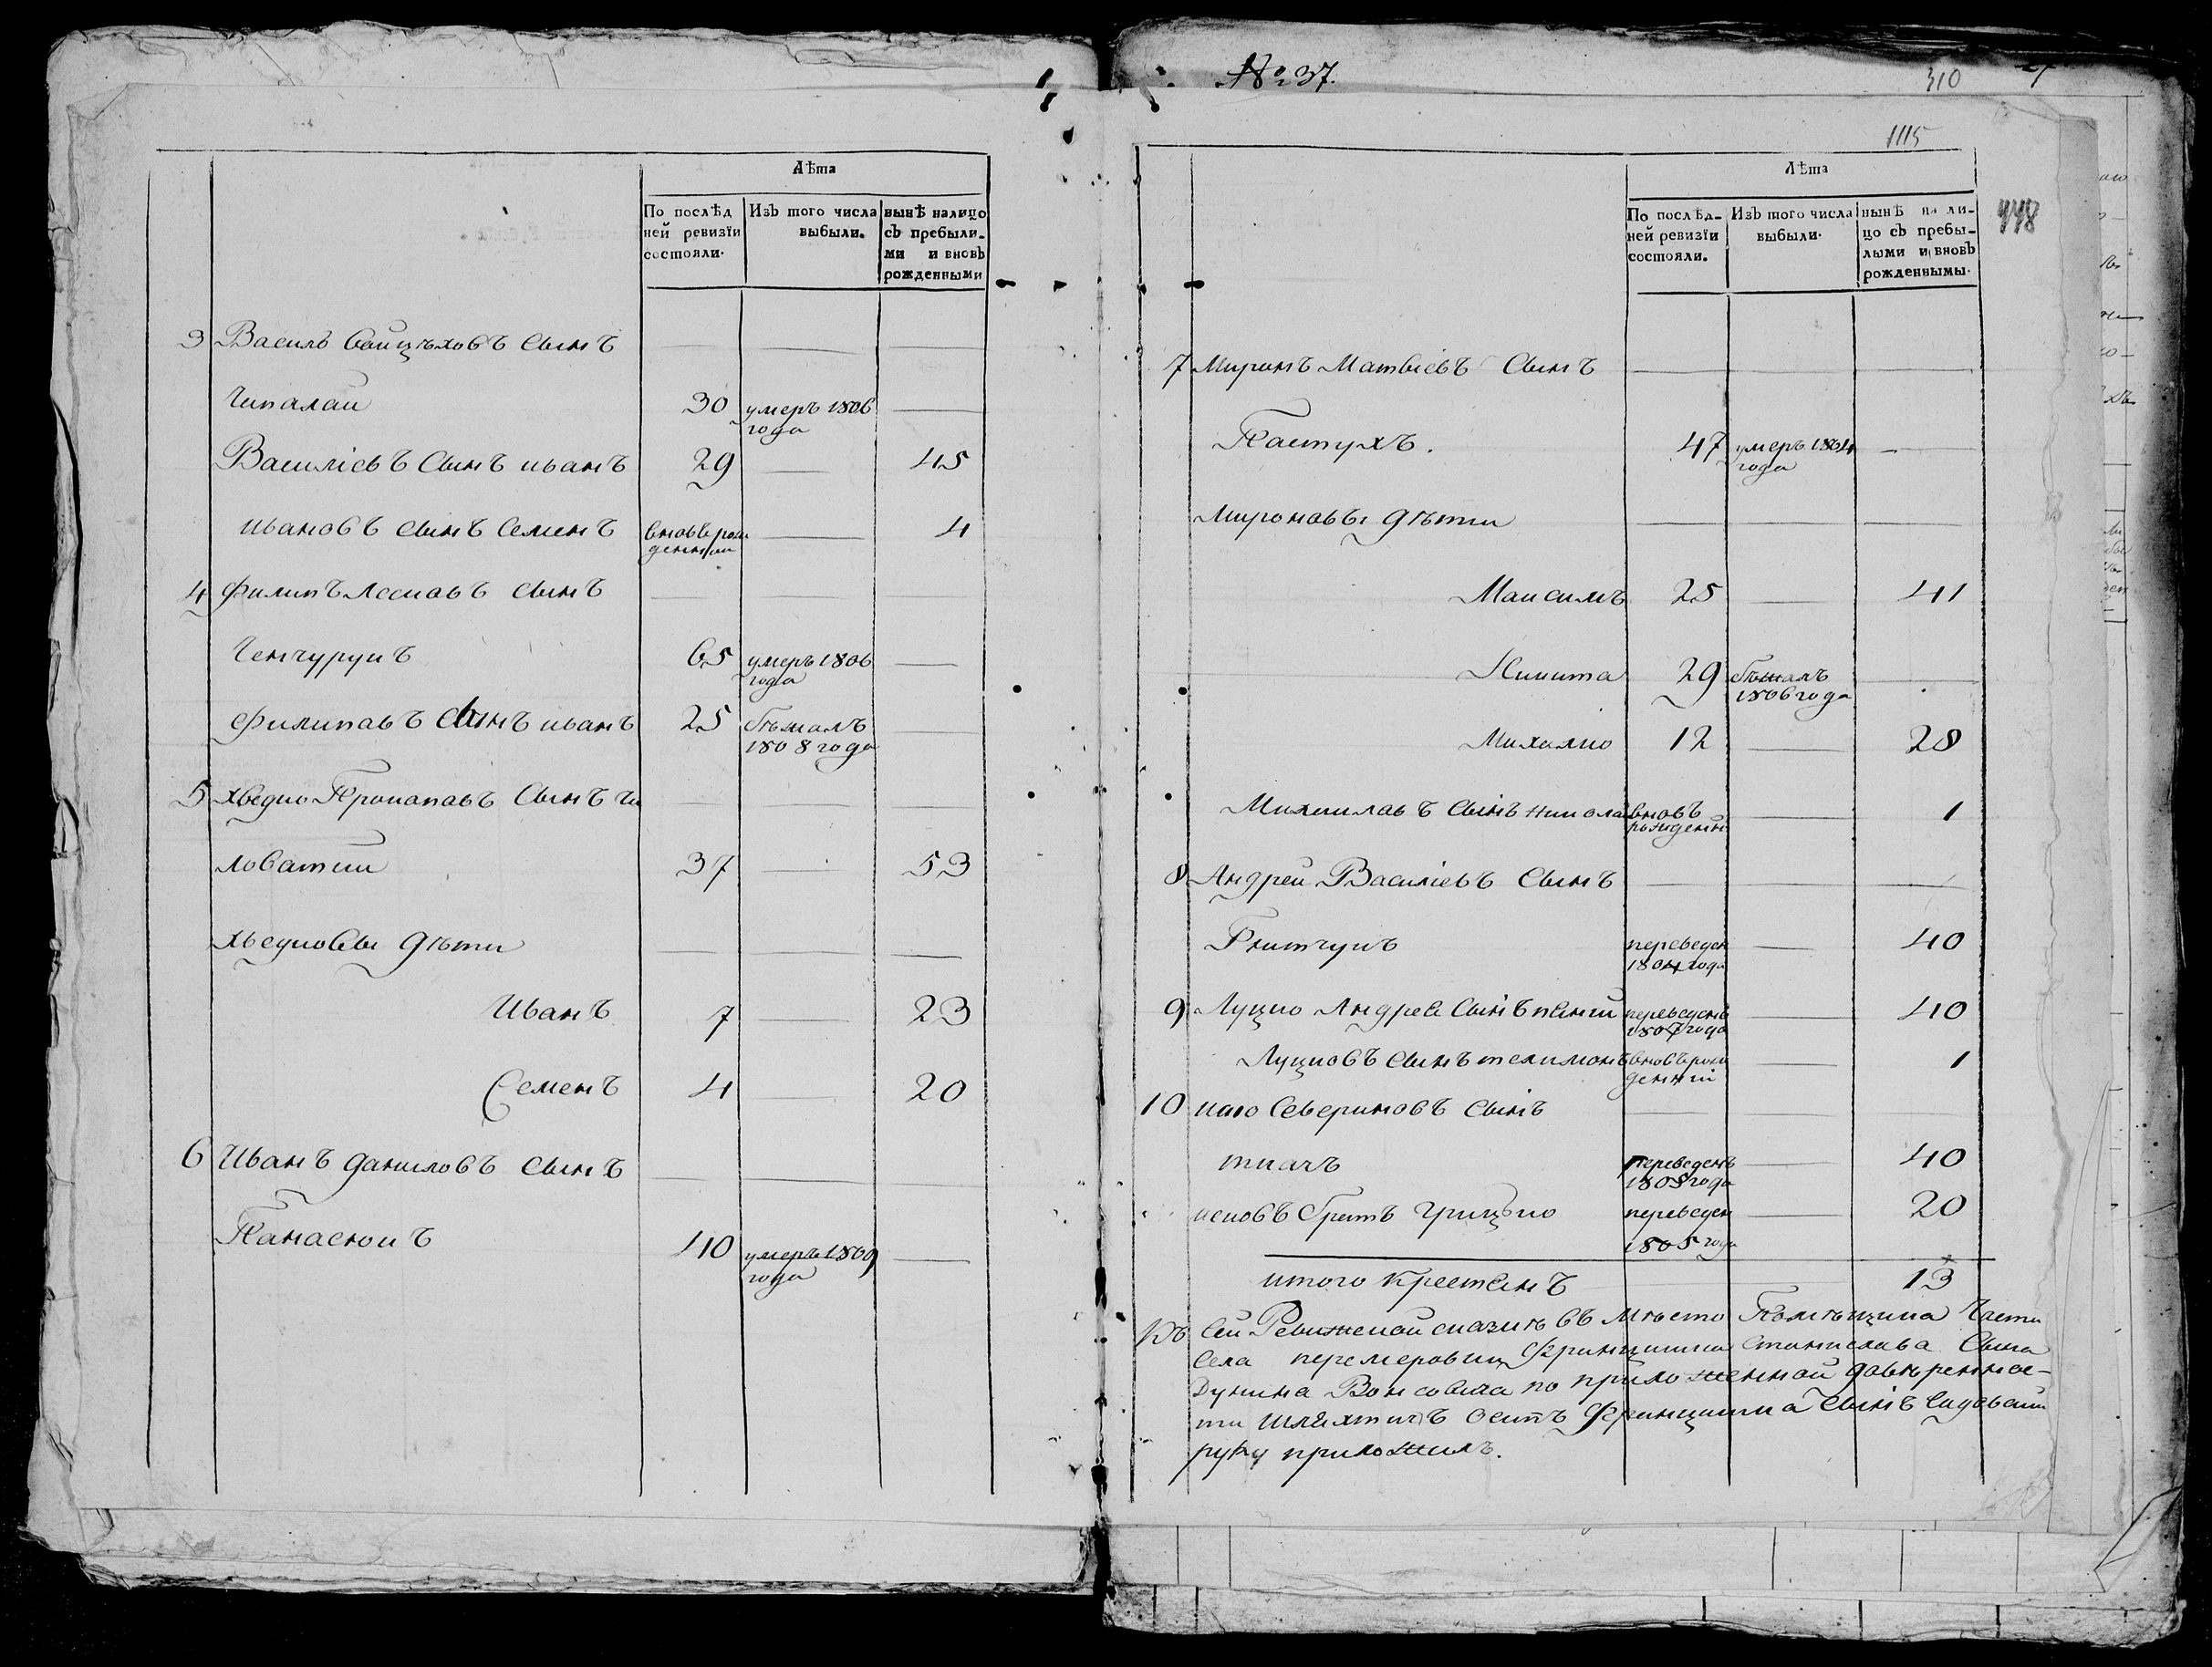 Лѣта
По послѣд
ней ревизїи
состояли.
Изъ того числа
выбыли.
нынѣ налицо
съ пребыли-
ми и вновь
рожденными
3 Василь Войцѣховъ Сынъ
Чипалай 30 умеръ 1806
года
Василіевъ Сынъ иванъ 29 45
ивановъ сынъ Семенъ вновь рож 4
денный
4 Филипъ Лесковъ сынъ
65 умеръ 1806
года
Филиповъ Сынъ иванъ 25 бѣжалъ
1808 года
5 хведко Прокоповъ Сынъ Че
ловатий 37 53
хведковы дѣти
Иванъ 7 23
Семенъ 4 20
6 Иванъ даниловъ сынъ
Панасюкъ 40 умеръ 1809
года
№ 37.
310
1115
448
Лѣта
По послѣд-
ней ревизїи
состояли.
Изъ того числа
выбыли.
нынѣ на ли-
цо съ пребы-
лыми и вновь
рожденнымы.
7 Миронъ Матвіевъ Сынъ
Пастухъ. 47 умеръ 1804
года
Мироновы дѣти
Максимъ 25 41
Никита 29 бѣжалъ
1806 года
Михалко 12 28
Михайловъ Сынъ николай вновь 1
рожденн
8 Андрей Василіевъ Сынъ
переведен 40
1804 года
9 Луцко Андрея Сынъ переведенъ 40
1807 года
Луцковъ сынъ телимонъ вновь рож 1
денній
10 Севериновъ сынъ
ткачъ переведенъ 40
1808 года
братъ Грицько переведен 20
1805 года
итого крестянъ 13
Къ Сей Ревижской сказкѣ въ мѣсто Помѣщика Части
Села перемеровки Францишка станислава Сына
Дунина Вонсовича по приложенной довѣреннос-
ти шляхтичъ Осипъ Францишка Сынъ
руку приложилъ.